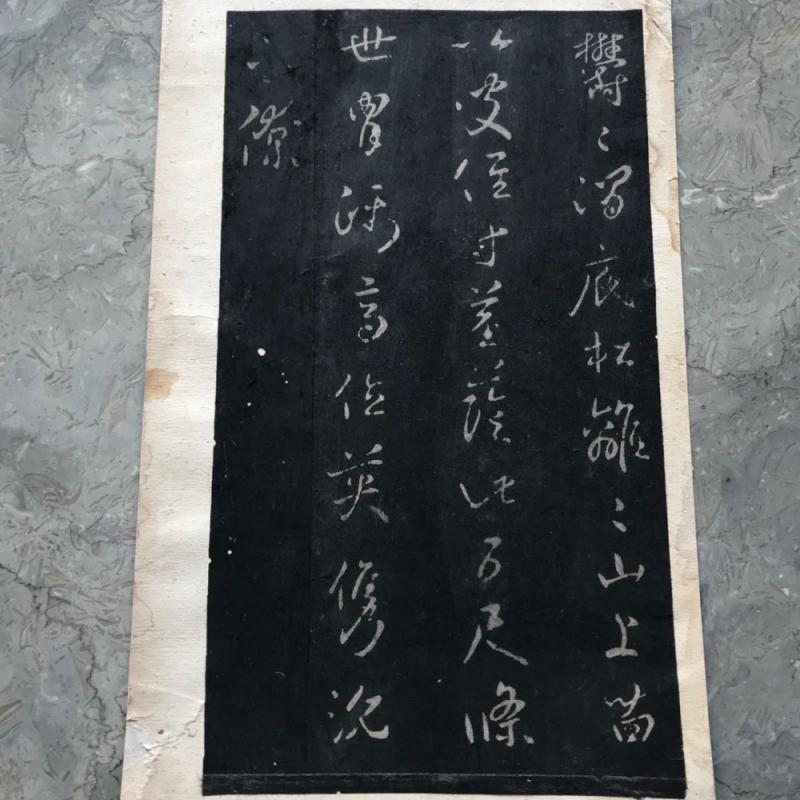 鬱〻澗底松離〻山上苗
以彼径寸茎蔭此百尺條
世胄躡高位英儁沉
下僚